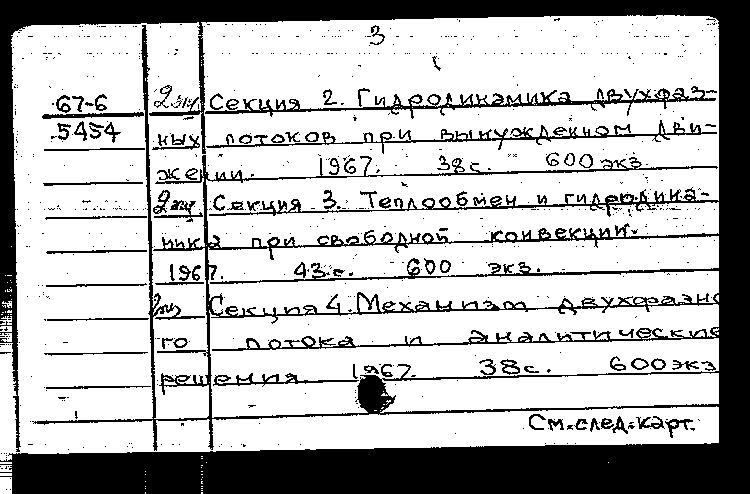 3
67-6 2 экз. Секция 2. Гидродинамика двухфаз-
5454 ных потоков при вынужденном дви-
жении. 1967. 38с. 600 экз.
2 экз. Секция 3. Теплообмен и гидродина-
мика при свободной конвекции.
1967. 43 с. 600 экз.
2 экз Секция 4. Механизм двухфазно
го потока и аналитические
решения 1967. 38с. 600 экз
См.след.карт.